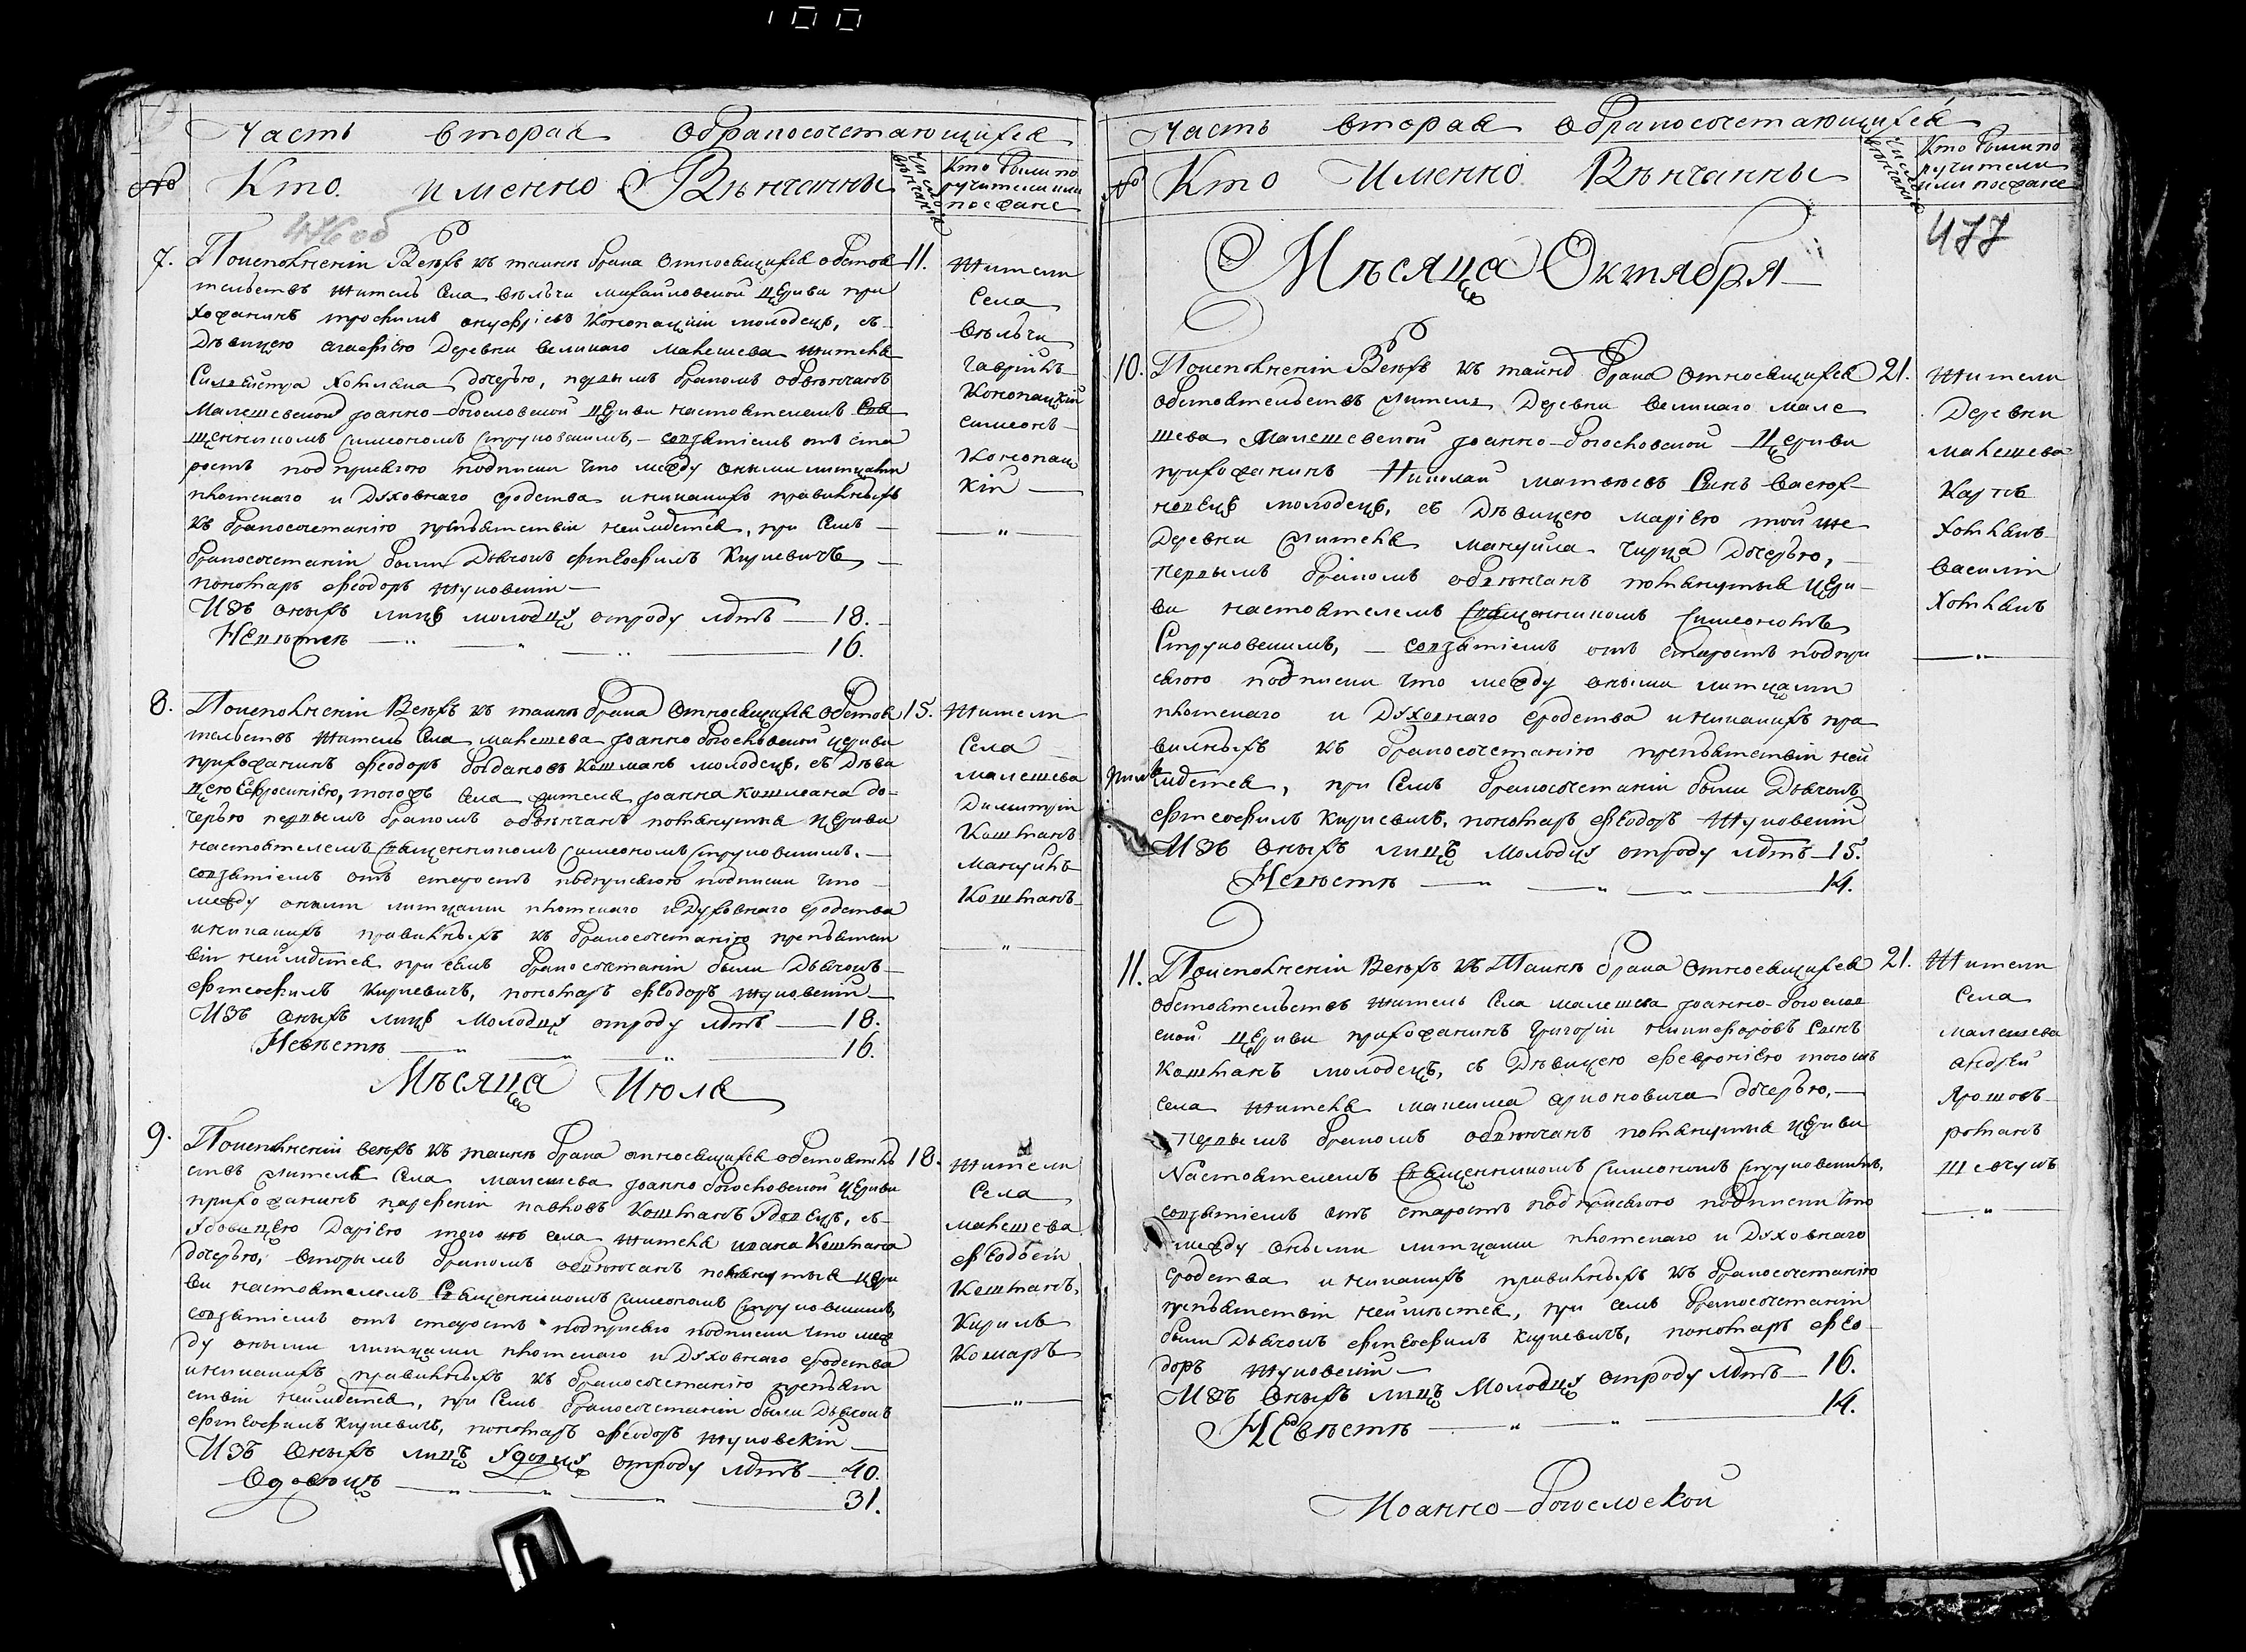 Часть вторая обракосочетающихся
№ Кто именно Вѣнчанны Число вѣнчанія Кто были по
ручители или
посзане
476 об
7. Поисполненіи Всехъ къ таинѣ брака относящихся обстоя 11.
тельствъ житель села вельѣчи михайловской церкви при
хожанинъ трофимъ онуфріевъ Конопацкій молодецъ, съ
Дѣвицею агафіею Деревни великаго малешева жителя
Силвестра хотляна дочерью, первымъ бракомъ обвѣнчанъ
Малешевской іоанно-богословской церкви настоятелемъ Свя
щенникомъ симеономъ струковскимъ, – совзятіемъ отъ ста
ростъ подприсягою подписки что между оными лицами
плотскаго и Духовнаго сродства иникакихъ правильныхъ
къ бракосочетанію препятствіи неимѣется, при семъ
бракосочетаніи были Дьячокъ фтеофилъ Кириевичъ
пономарь феодоръ жуковскій
Изъ оныхъ лицъ молодцу отроду лѣтъ – 18.
Невѣстѣ – 16.
Жители
Села
вельѣчи
гавріилъ
Конопацкій
симеонъ
Конопац
кій
8. Поисполненіи Всехъ къ таинѣ брака относящихся обстоя 15.
тельствъ житель Села малешева іоанно богословской церкви
прихожанинъ феодоръ богдановъ Кошманъ молодецъ, съ Дѣви
цею Ефросиніею, тогожъ села жителя іоанна кошмана до
черью первымъ бракомъ обвѣнчанъ помянутыя церкви
настоятелемъ священникомъ симеономъ струковскимъ. –
совзятіемъ отъ старостъ подприсягою подписки что
между оными лицами плотскаго и Духовнаго сродства
иникакихъ правильныхъ къ бракосочетанію препятст
віи неимѣется при семъ бракосочетаніи были Дьячокъ
фтеофилъ Кириевичъ, пономарь феодоръ жуковскій
Изъ оныхъ лицъ Молодцу отроду лѣтъ – 18.
Невѣстѣ – 16.
Жители
Села
Малешева
Димитрій
Кошманъ
Мануилъ
Кошманъ
Мѣсяца Июля
9. Поисполненіи всехъ къ таинѣ брака относящихся обстоятель 18.
ствъ житель Села малешева іоанно богословской церкви
прихожанинъ парфеній павловъ Кошманъ вдовецъ, съ
вдовицею Даріею того жъ села жителя ивана Кошмана
дочерью, вторымъ бракомъ обвѣнчанъ помянутыя церк
ви настоятелемъ Священникомъ симеономъ струковскимъ,
совзятіемъ отъ старостъ подприсягою подписки что меж
ду оными лицами плотскаго и Духовнаго сродства
иникакихъ правильныхъ къ бракосочетанію препят
ствіи неимѣется, при Семъ бракосочетаніи были Дьячокъ
фтеофилъ кириевичъ, пономарь феодоръ жуковскій
Изъ Оныхъ лицъ вдовцу отроду лѣтъ – 40.
Вдовицѣ – 31.
Жители
Села
малешева
феодосій
Кошманъ,
Кирилъ
Комаръ
Часть вторая обракосочетающихся
№ Кто Именно Вѣнчанны Число вѣнчанія Кто были по
ручители
или посзане
477
Мѣсяца Октября
10. Поисполненіи Всехъ къ тайнѣ брака относящихся 21.
обстоятельствъ житель Деревни великаго мале
шева Малешевской іоанно-богословской Церкви
прихожанинъ Николай матвѣевъ Сынъ
молодецъ, съ Дѣвицею маріею той же
Деревни жителя мануила дочерью,
первымъ бракомъ обвѣнчанъ помянутыя церк
ви настоятелемъ Священникомъ симеономъ
Струковскимъ, – совзятіемъ отъ старостъ подпри
сягою подписки что между оными лицами
плотскаго и Духовнаго сродства иникакихъ пра
вильныхъ къ бракосочетанію препятствіи неи
мѣется, при Семъ бракосочетаніи были Дьячокъ
фтеофилъ кириевичъ, пономарь феодоръ Жуковскій
Изъ оныхъ лицъ Молодцу отроду лѣтъ – 15.
Невѣстѣ – 14.
Жители
Деревни
малешева
Карпъ
Хотлянъ
василій
Хотлянъ
11. Поисполненіи Всехъ къ Таинѣ брака относящихся 21.
обстоятельствъ житель Села малешева іоанно-богослов
ской церкви прихожанинъ григорій никифоровъ Сынъ
Кошманъ молодецъ, съ Дѣвицею февроніею того жъ
села жителя максима дочерью,
первымъ бракомъ обвѣнчанъ помянутыя церкви
Настоятелемъ Священникомъ симеономъ струковскимъ,
совзятіемъ отъ старостъ подприсягою подписки что
между оными лицами плотскаго и Духовнаго
сродства иникакихъ правильныхъ къ бракосочетанію
препятствіи неимѣется, при семъ бракосочетаніи
были Дьячокъ фтеофилъ кириевичъ, пономарь фео
доръ жуковскій
Изъ оныхъ лицъ Молодцу отроду лѣтъ – 16.
Невѣстѣ – 14.
Жители
Села
малешева
андрей
Ярошовъ
романъ
Шевчукъ
Иоанно-богословской